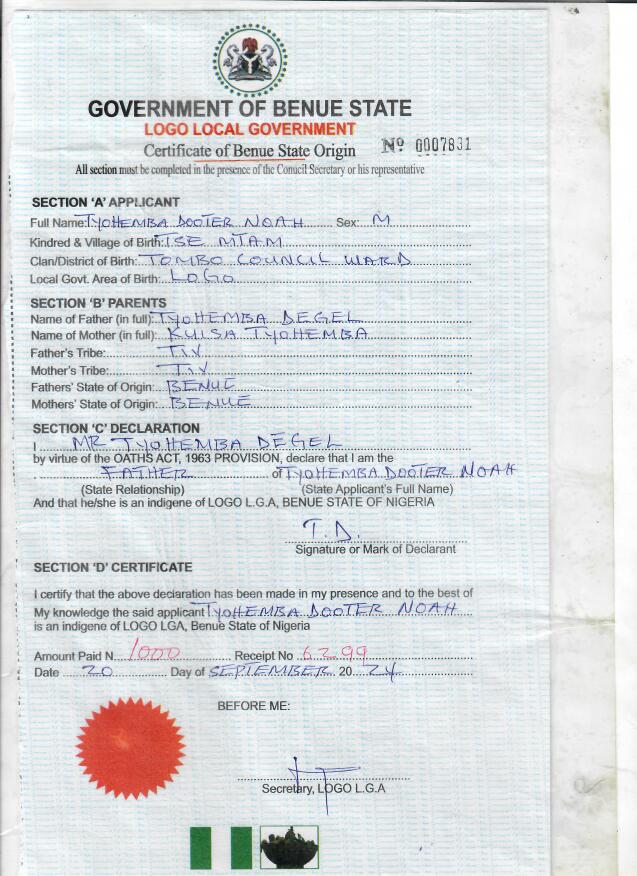 GOVERNMENT OF BENUE STATE
LOGO LOCAL GOVERNMENT
Certificate of Benue State Origin Nº 0007831
All section must be completed in the presence of the Conucil Secretary or his representative
SECTION 'A' APPLICANT
Full Name: TYOHEMBA DOOTER NOAH Sex: M
Kindred & Village of Birth: TSE MTAM
Clan/District of Birth: TOMBO COUNCIL WARD
Local Govt. Area of Birth: LOGO
SECTION 'B' PARENTS
Name of Father (in full): TYOHEMBA DEGEL
Name of Mother (in full): KUISA TYOHEMBA
Father's Tribe: TIV
Mother's Tribe: TIV
Fathers' State of Origin: BENUE
Mothers' State of Origin: BENUE
SECTION 'C' DECLARATION
I MR TYOHEMBA DEGEL
by virtue of the OATHS ACT, 1963 PROVISION, declare that I am the
FATHER of TYOHEMBA DOOTER NOAH
(State Relationship) (State Applicant's Full Name)
And that he/she is an indigene of LOGO L.G.A, BENUE STATE OF NIGERIA
T.D.
Signature or Mark of Declarant
SECTION 'D' CERTIFICATE
I certify that the above declaration has been made in my presence and to the best of
My knowledge the said applicant TYOHEMBA DOOTER NOAH
is an indigene of LOGO LGA, Benue State of Nigeria
Amount Paid N 1000 Receipt No 6299
Date 20 Day of SEPTEMBER 20 24
BEFORE ME:
Secretary, LOGO L.G.A